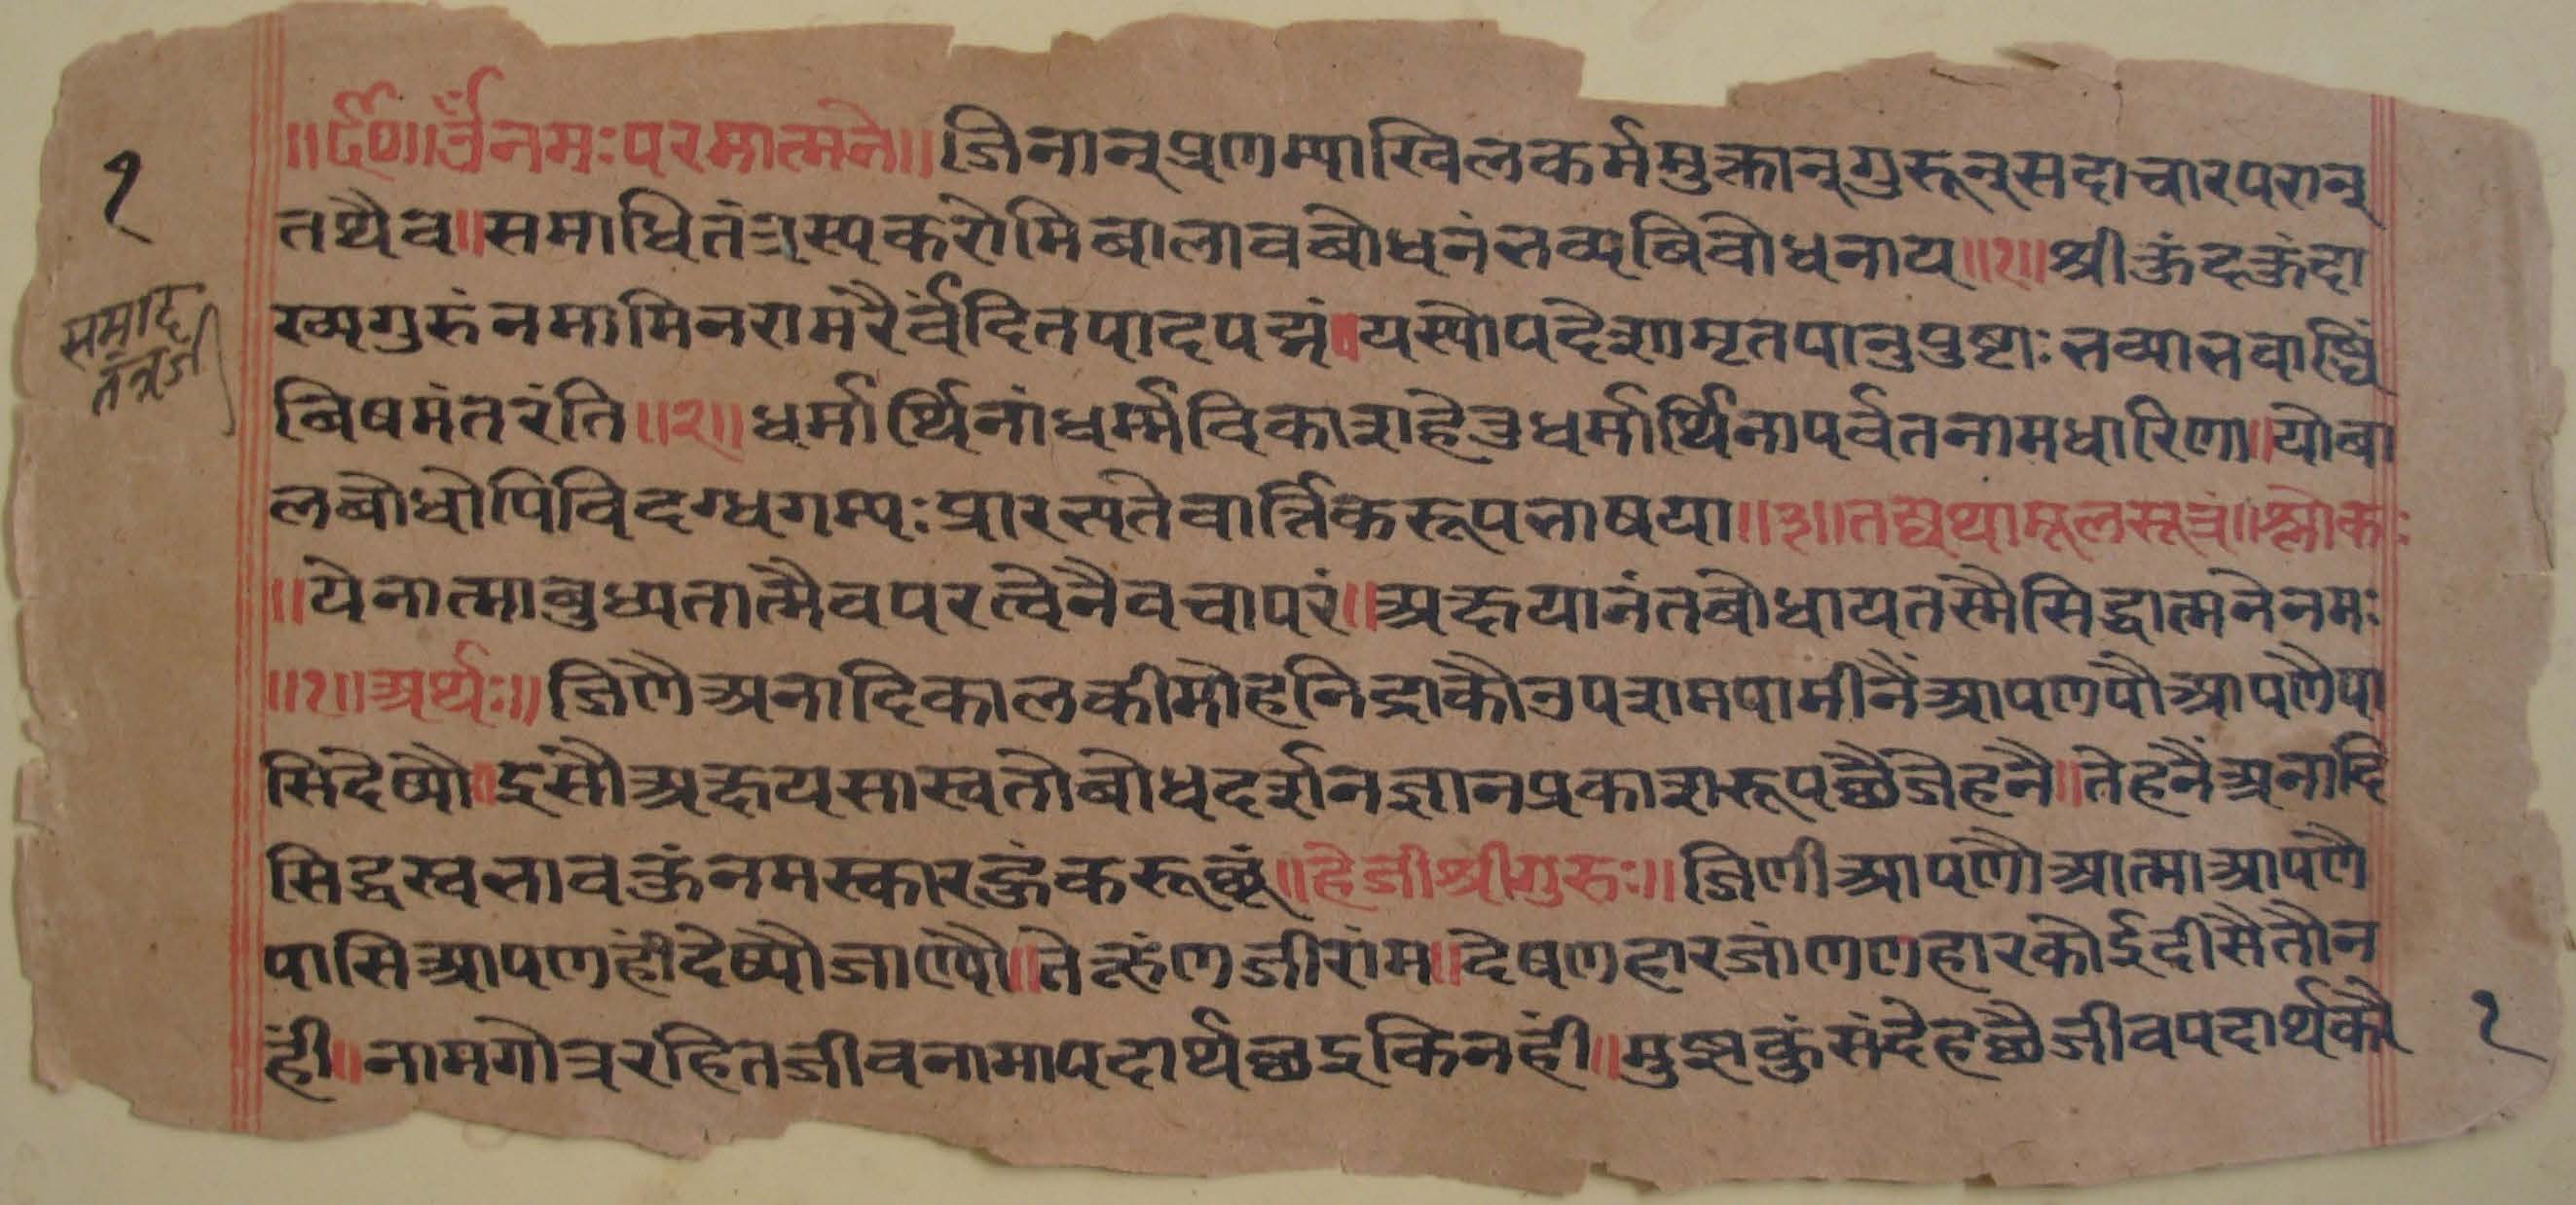 ॥ र्द० ॥ ॐ नमः परमात्मने ॥ जिनान् प्रणम्याखिलकर्ममुक्तान् गुरून् सदाचारपरान्
१
तथैव ॥ समाधितंत्रस्य करोमि बालावबोधनं भव्यविबोधनाय ॥१॥ श्री कुंदकुंदा
समाद
तंत्रजी
ख्यगुरुं नमामि नरामरैर्वंदितपादपद्मं । यस्योपदेशामृतपानुपुष्टाः भव्या भवाब्धिं
बिषमं तरंति ॥२॥ धर्मार्थिनां धर्म्मविकाशहेतु धर्मार्थिना पर्वतनामधारिणा ॥ यो बा
लबोधोपि विदग्धगम्यः प्रारभ्यते वार्त्तिकरूपभाषया ॥३॥ तद्यथा मूलसूत्रं ॥ श्लोकः
॥ येनात्माबुध्यतात्मैव परत्वेनैव चापरं ॥ अक्षयानंतबोधाय तस्मै सिद्धात्मने नमः
॥१॥ अर्थः ॥ जिणै अनादिकालकी मोहनिद्राकौ उपशम पामीनैं आपणपौ आपणै पा
सि देष्यौ । इसौ अक्षय सास्वतो बोध दर्शन ज्ञान प्रकाशरूप छै जेहनै ॥ तेहनैं अनादि
सिद्धस्वभावकुं नमस्कार हुं करू छूं ॥ हे जी श्रीगुरुः ॥ जिणी आपणौ आत्मा आपणै
पासि आपणहीं देष्यौ जाण्यौ ॥ ते जीरांम ॥ देषणहार जांणणहार कोई दीसै तौ न
हीं ॥ नाम गोत्र रहित जीवनामा पदार्थ छइ कि नहीं ॥ मुझकुं संदेह छै जीव पदार्थकौ
१